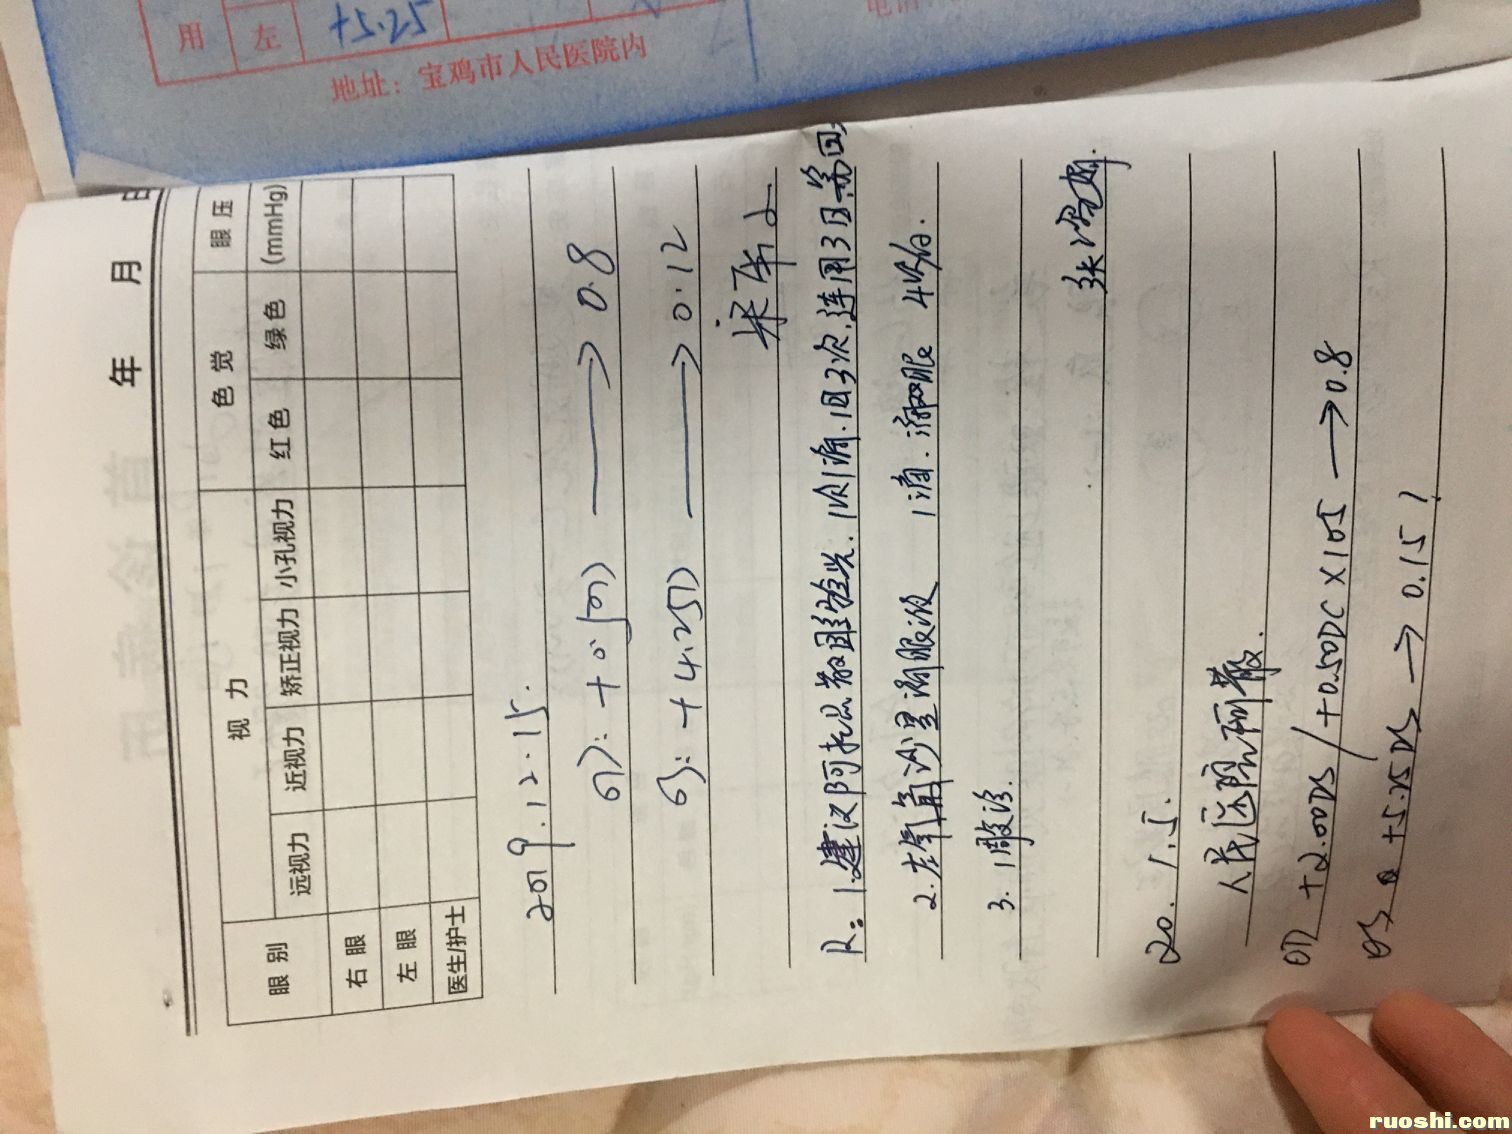 用 左 +5.25
地址：宝鸡市人民医院内
年 月 日
眼别 视力 色觉 眼压
远视力 近视力 矫正视力 小孔视力 红色 绿色 (mmHg)
右眼
左眼
医生/护士
2019.12.15.
→ 0.8
+4.25 → 0.12
R: 1.建议阿托品散瞳验光. 1次1滴. 1日3次. 连用3日
2.左氧氟沙星滴眼液 1滴. 滴双眼 4次/日.
3.
20.1.5.
人民医院
OD +2.00DS / +0.50DC×105 → 0.8
OS +5.25DS → 0.15
ruoshi.com